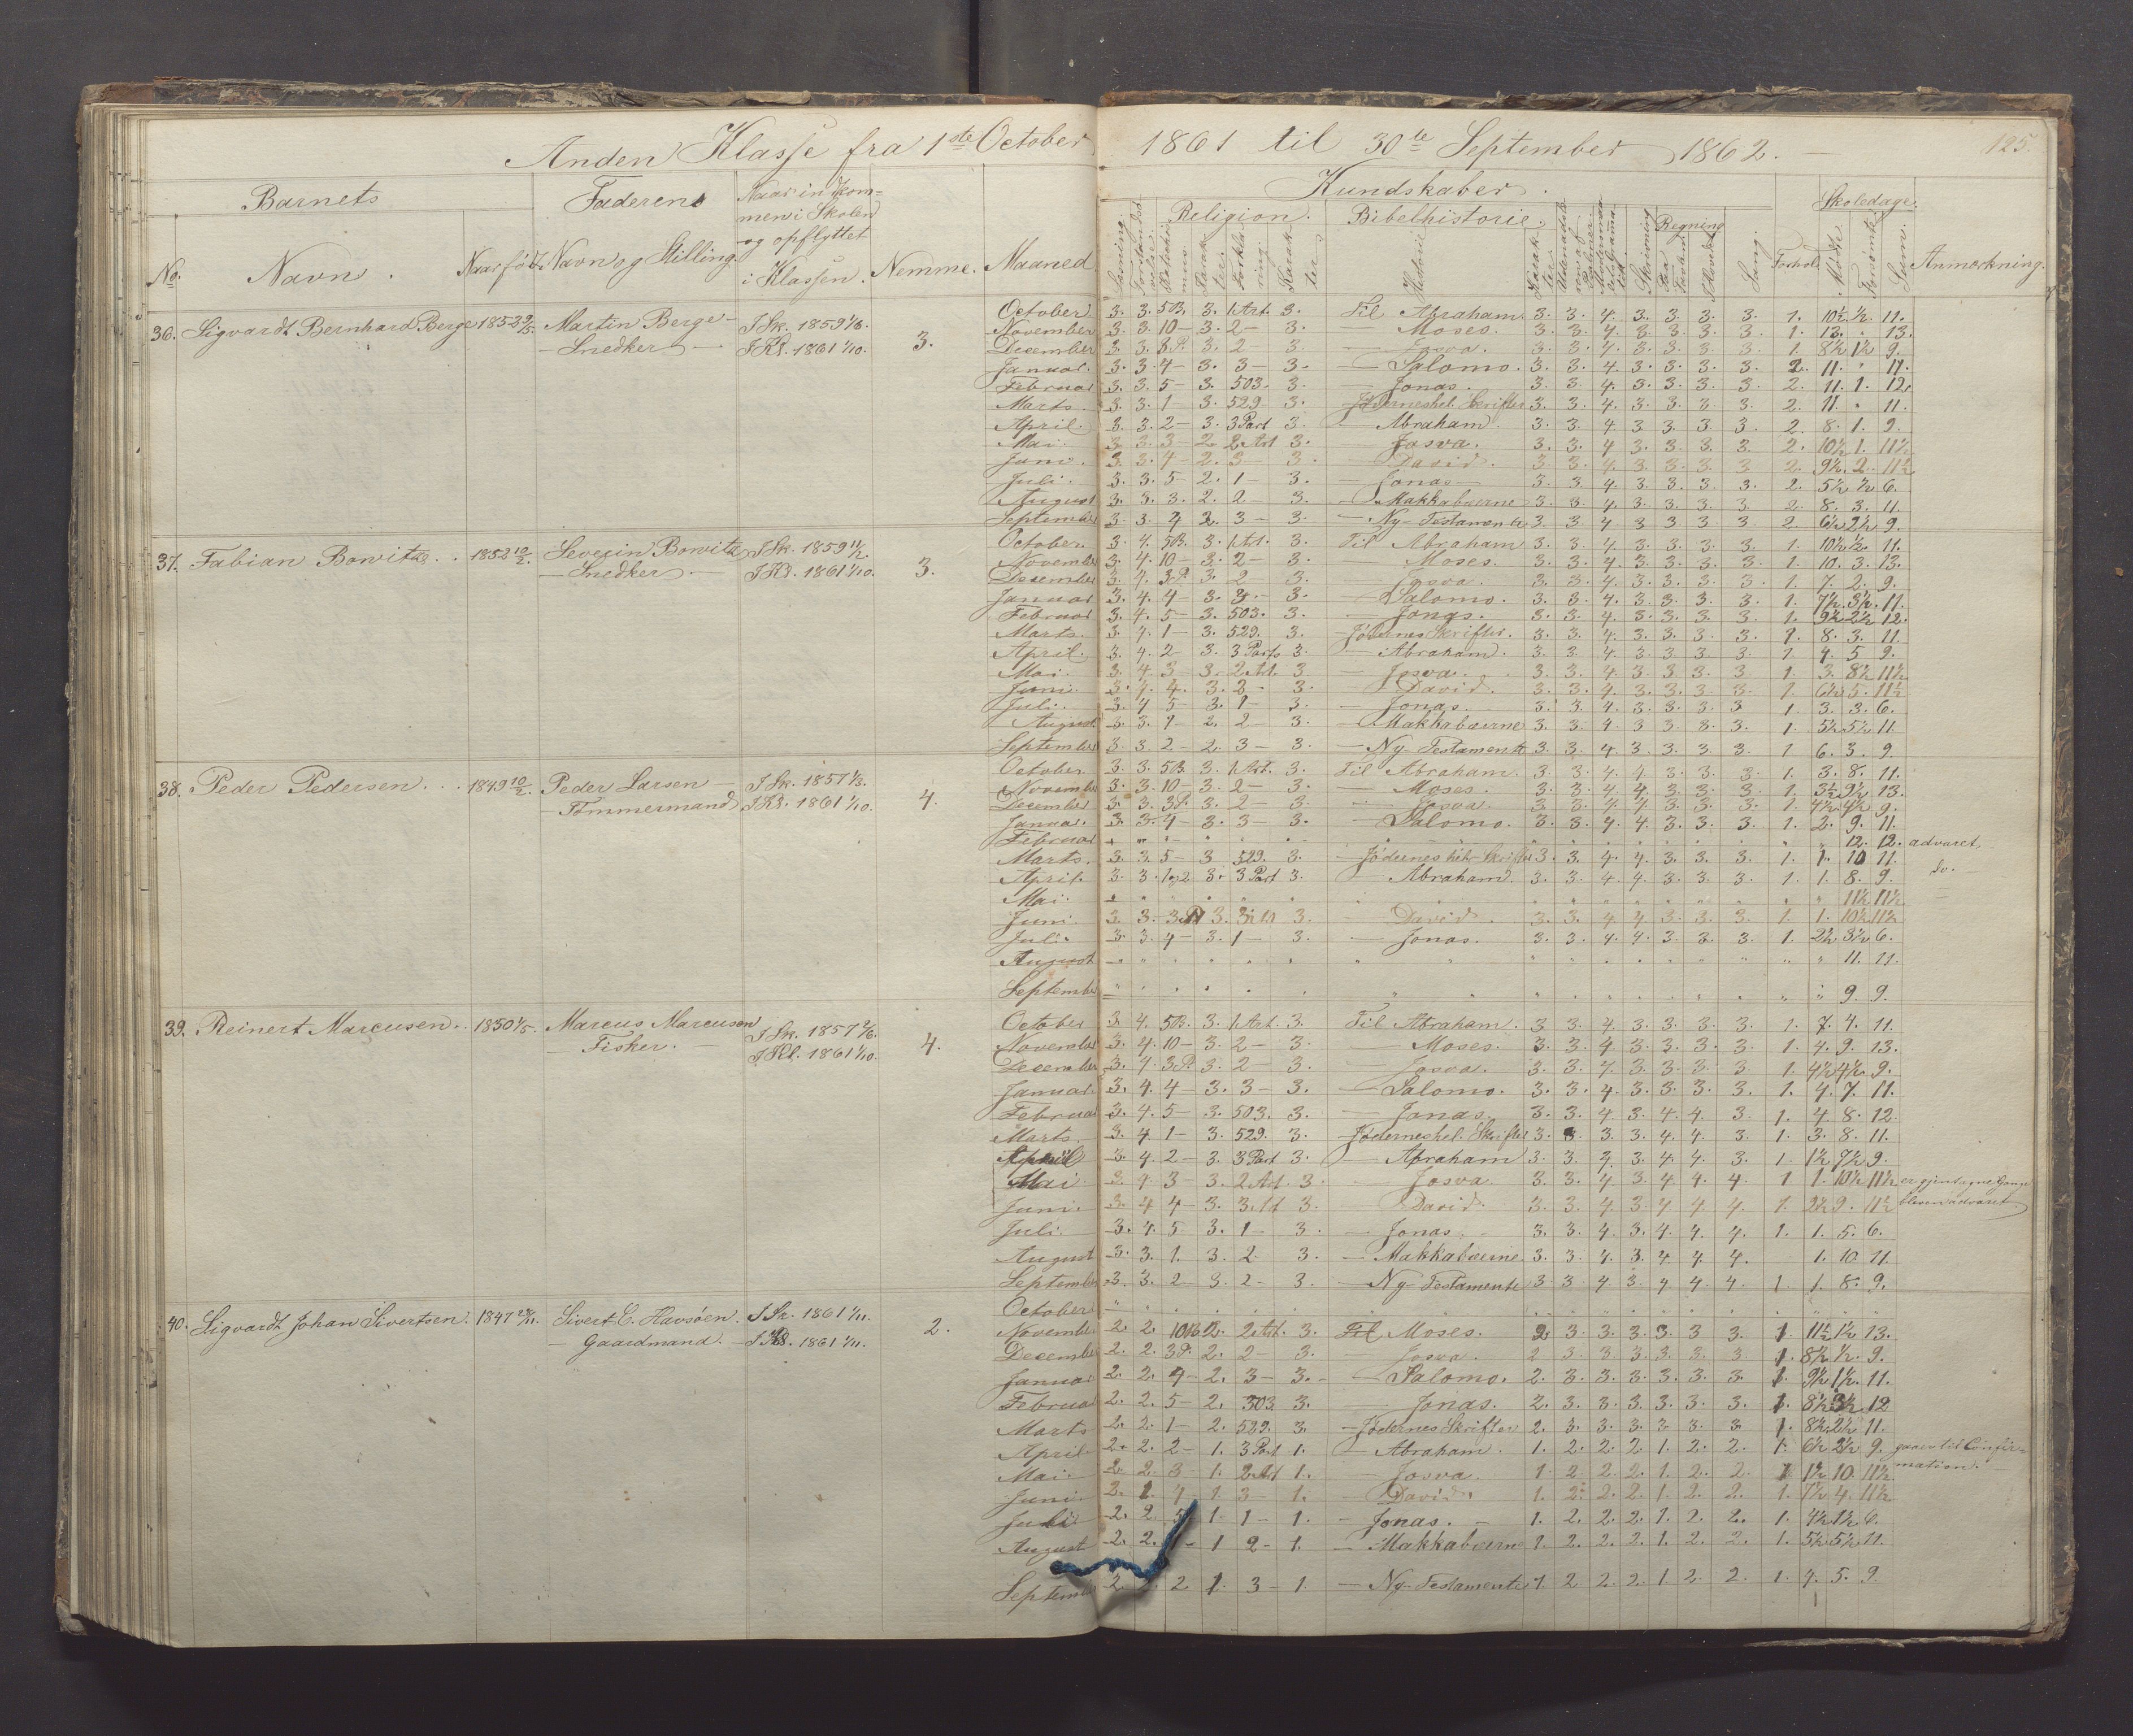 Anden Klasse fra 1ste October 1861 til 30te September 1862. 125.
Barnets Faderens Naar indkom-
men i Skolen
og opflyttet
i Klassen.
Kundskaber.
Religion. Bibelhistorie. Regning Skoledage.
No. Navn. Naar født. Navn og Stilling. Nemme. Maaned. Læsning. Historie Skrivning Sang. Forhold Mødt. Forsømt. Sum. Anmærkning.
36. Sigvardt Bernhard Berge Martin Berge – Snedker – I Sk. 1859 I Kl. 1861 1/10. 3.
October 3. 3. 5B. 3. 1 Art. 3. Til Abraham. 3. 3. 4. 3. 3. 3. 3. 1. 10½ ½. 11.
November 3. 3. 10 – 3. 2 – 3. – Moses. 3. 3. 4. 3. 3. 3. 3. 1. 13. " 13.
December 3. 3. 3P. 3. 2 – 3. – Josva. 3. 3. 4. 3. 3. 3. 3. 1. 8½ ½ 9.
Januar. 3. 3. 4 – 3. 3 – 3. – Salomo. 3. 3. 4. 3. 3. 3. 3. 2. 11. " 11.
Februar 3. 3. 5 – 3. 503. 3. – Jonas. 3. 3. 4. 3. 3. 3. 3. 2. 11. 1. 12.
Marts. 3. 3. 1 – 3. 529 3. – Jødernes hel. Skrifter 3. 3. 4. 3. 3. 3. 3. 2. 11. " 11.
April. 3. 3. 2 – 3. 3 Part 3. – Abraham. 3. 3. 4. 3. 3. 3. 3. 2. 8. 1. 9.
Mai. 3. 3. 3 – 2. 2 Art 3. – Josva. 3. 3. 4. 3. 3. 3. 3. 2. 10½ 1. 11½
Juni. 3. 3. 4 – 2. 3 – 3. – David. 3. 3. 4. 3. 3. 3. 3 2. 9½. 2. 11½
Juli. 3. 3. 5 – 2. 1 – 3. – Jonas – 3. 3. 4. 3. 3. 3. 3. 2. 5½ ½ 6.
August 3. 3. 3. 2. 2 – 3. – Makkabæerne 3. 3. 4. 3. 3. 3. 3. 2. 8. 3. 11.
September 3. 3. 2. 3 – 3. – Ny-Testamente 3. 3. 4 3 3 3 3 2 6½ 2½ 9.
37. Fabian Bowitz . . 1852 Severin Bowitz – Snedker. – I Sk. 1859 I Kl. 1861 1/10. 3.
October. 3. 4. 5B. 3. 1 Art. 3. Til Abraham 3. 3. 4. 3. 3. 3. 3. 1. 10½ ½. 11.
November 3. 4. 10 – 3. 2 – 3. – Moses. 3. 3. 4. 3. 3. 3. 3. 1. 10. 3. 13.
December 3. 4. 3P. 3. 2 3. – Josva. 3. 3. 4. 3. 3. 3. 3. 1. 7. 2. 9.
Januar 3. 4. 4 – 3. 3. – 3. – Salomo. 3. 3. 4. 3. 3. 3. 3. 1. 7½. 3½. 11.
Februar 3. 4. 5 – 3. 503. 3. – Jonas. 3. 3. 4. 3. 3. 3. 3. 1. 9½ 2½ 12.
Marts. 3. 4. 1 – 3. 529. 3. – Jødernes Skrifter. 3. 3. 4. 3. 3. 3. 3. 1. 8. 3. 11.
April. 3. 4. 2 – 3. 3 Part 3. – Abraham. 3. 3. 4. 3. 3. 3. 3. 1. 4. 5 9.
Mai. 3. 4. 3 3. 2 Art. 3 – Josva. 3. 3. 4. 3. 3. 3. 3 1. 3. 8½ 11½
Juni. 3. 4. 4. 3. 3. – 3. – David. 3. 3. 4. 3. 3. 3. 3. 1. 6½ 5. 11½
Juli. 3. 4 5 – 3. 1 – 3. – Jonas. – 3. 3. 4. 3. 3. 3. 3 1. 3. 3. 6.
August. 3. 3. 1 – 2. 2 – 3. – Makkabæerne 3. 3. 4. 3 3 3. 3. 1. 5½ 5½ 11.
September 3. 3. 2 – 2. 3 – 3. – Ny-Testamente 3. 3. 4. 3. 3. 3. 3. 1 6. 3. 9.
38. Peder Pedersen. . . 1849 Peder Larsen – – Tømmermand. I Sk. 1857 I Kl. 1861 1/10. 4.
October 3. 3. 5B. 3. 1 Art. 3. Til Abraham. 3. 3. 4. 4. 3. 3. 3. 1. 3. 8. 11.
November 3. 3. 10 – 3. 2 – 3. – Moses. 3. 3. 4. 4. 3. 3. 3. 1. 3½ 9½ 13.
December 3. 3. 3P. 3. 2 – 3. – Josva. 3. 3. 4. 4. 3. 3. 3. 1. 4½ 4½ 9.
Januar. 3. 3. 4 – 3. 3 – 3. – Salomo. 3. 3. 4. 4. 3. 3. 3. 1. 2. 9. 11.
Februar " " 12. 12. advaret,
Marts. 3. 3. 5 – 3 529. 3. – Jødernes hel. Skrifter 3. 3. 4. 4. 3. 3. 3. 1. 1. 10 11.
April. 3. 3. 1 og 2 3. 3 Part 3. – Abraham. 3. 3. 4. 4. 3. 3. 3. 1. 1. 8. 9. do. –
Mai. " " 11½ 11½ =
Juni. 3. 3. 3. – David. 3. 3. 4. 4. 3. 3. 3. 1. 1. 10½ 11½
Juli. 3. 3. 4 – 3. 1 – 3. – Jonas. 3. 3. 4. 4. 3. 3. 3. 1. 2½ 3½ 6.
August " " 11. 11.
September " " 9. 9.
39. Reinert Marcusen. . 1850 1/5. Marcus Marcusen – Fisker. – I Sk. 1857 I Kl. 1861 1/10. 4.
October 3. 4. 5B. 3. 1 Art. 3. Til Abraham. 3. 3. 4. 3. 3. 3. 3. 1. 7. 4. 11.
November 3. 4. 10 – 3. 2 – 3. – Moses. 3. 3. 4. 3. 3. 3. 3. 1. 4. 9. 13.
December 3. 4. 3P. 3. 2 – 3. – Josva. 3. 3. 4. 3. 3. 3. 3. 1. 4½ 4½. 9.
Januar. 3. 4. 4 – 3. 3 – 3. – Salomo. 3. 3. 4. 3. 3. 3. 3. 1. 4. 7. 11.
Februar 3. 4. 5 – 3. 503. 3. – Jonas. 3. 3. 4. 3. 4. 4. 3 1. 4. 8. 12.
Marts. 3. 4. 1 – 3. 529. 3. – Jødernes hel. Skrifter 3. 3. 3. 3. 4. 4. 3. 1. 3. 8. 11.
April 3. 4. 2 – 3. 3 Part 3. – Abraham 3. 3. 3. 4. 4. 3. 1. 1½ 7½ 9.
Mai 3. 4. 3 – 3. 2 Art. 3. – Josva. 3. 3. 4. 3. 4. 4. 4. 1 1. 10½ 11½ er gjentagne Gange
Juni. 3. 4 4 – 3. 3 Art 3. – David. 3. 3. 4. 3. 4. 4. 4. 1. 2½ 9. 11½ bleven advaret
Juli. 3. 4. 5 3. 1 – 3. – Jonas. – 3. 3. 4. 3. 4. 4. 4. 1. 1. 5. 6.
August 3. 3. 1. 3. 2. 3. – Makkabæerne 3. 3. 4. 3. 4. 4. 4. 1. 10. 11.
September 3. 3. 2 – 3. 2 – 3. – Ny-Testamente 3. 3. 4 3. 4. 4. 4. 1. 1. 8. 9.
40. Sigvardt Johan Sivertsen. 1847 Sivert C. Havsøen. – Gaardmand. – I Sk. 1861 1/11. I Kl. 1861 1/11. 2.
October
November 2. 2. 10B. 2. 2 Art. 3. Til Moses. 2. 3. 3. 3. 3. 3 3. 1. 11½ 1½ 13.
December 2. 2. 3P. 2. 2 – 3. – Josva. 2 3. 3. 3. 3. 3. 3. 1. 8½ ½. 9.
Januar 2. 2. 4 – 2. 3 – 3. – Salomo. 2. 3. 3. 3. 3. 3. 3. 1. 9½ 1½. 11.
Februar 2. 2. 5 – 2. 503 3. – Jonas. 2. 3. 3. 3. 3. 3. 3. 1. 8½ 3½. 12
Marts 2. 2. 1 – 2. 529. 3. – Jødernes Skrifter 2. 3. 3. 3. 3. 3. 3. 1. 8½ 2½ 11.
April 2. 2. 2 – 1. 3 Part 1. – Abraham. 1. 2. 2. 2. 1. 2. 2. 1. 6½ 2½ 9. gaaer til Confir-
Mai. 2. 2. 3 – 1. 2 Art 1. – Josva. 1. 2. 2. 2. 1. 2. 2. 1 1½ 10. 11½. mation.
Juni. 2. 1. 4 – 1. 3 – 1. – David. 1. 2. 2. 2. 1. 2. 2. 1. 7½ 4. 11½
Juli 2. 2. 5 1. 1 – 1. – Jonas. – 1. 2. 2. 2. 1. 2. 2. 1. 4½ 1½ 6.
August 2. 2. – 1 2 – 1. – Makkabæerne 1. 2. 2. 2. 1. 2. 2. 1. 5½ 5½ 11.
Septemb 2. 2. 2 1. 3 – 1. – Ny-Testamente 1. 2 2. 2. 1. 2. 2. 1. 4. 5. 9.